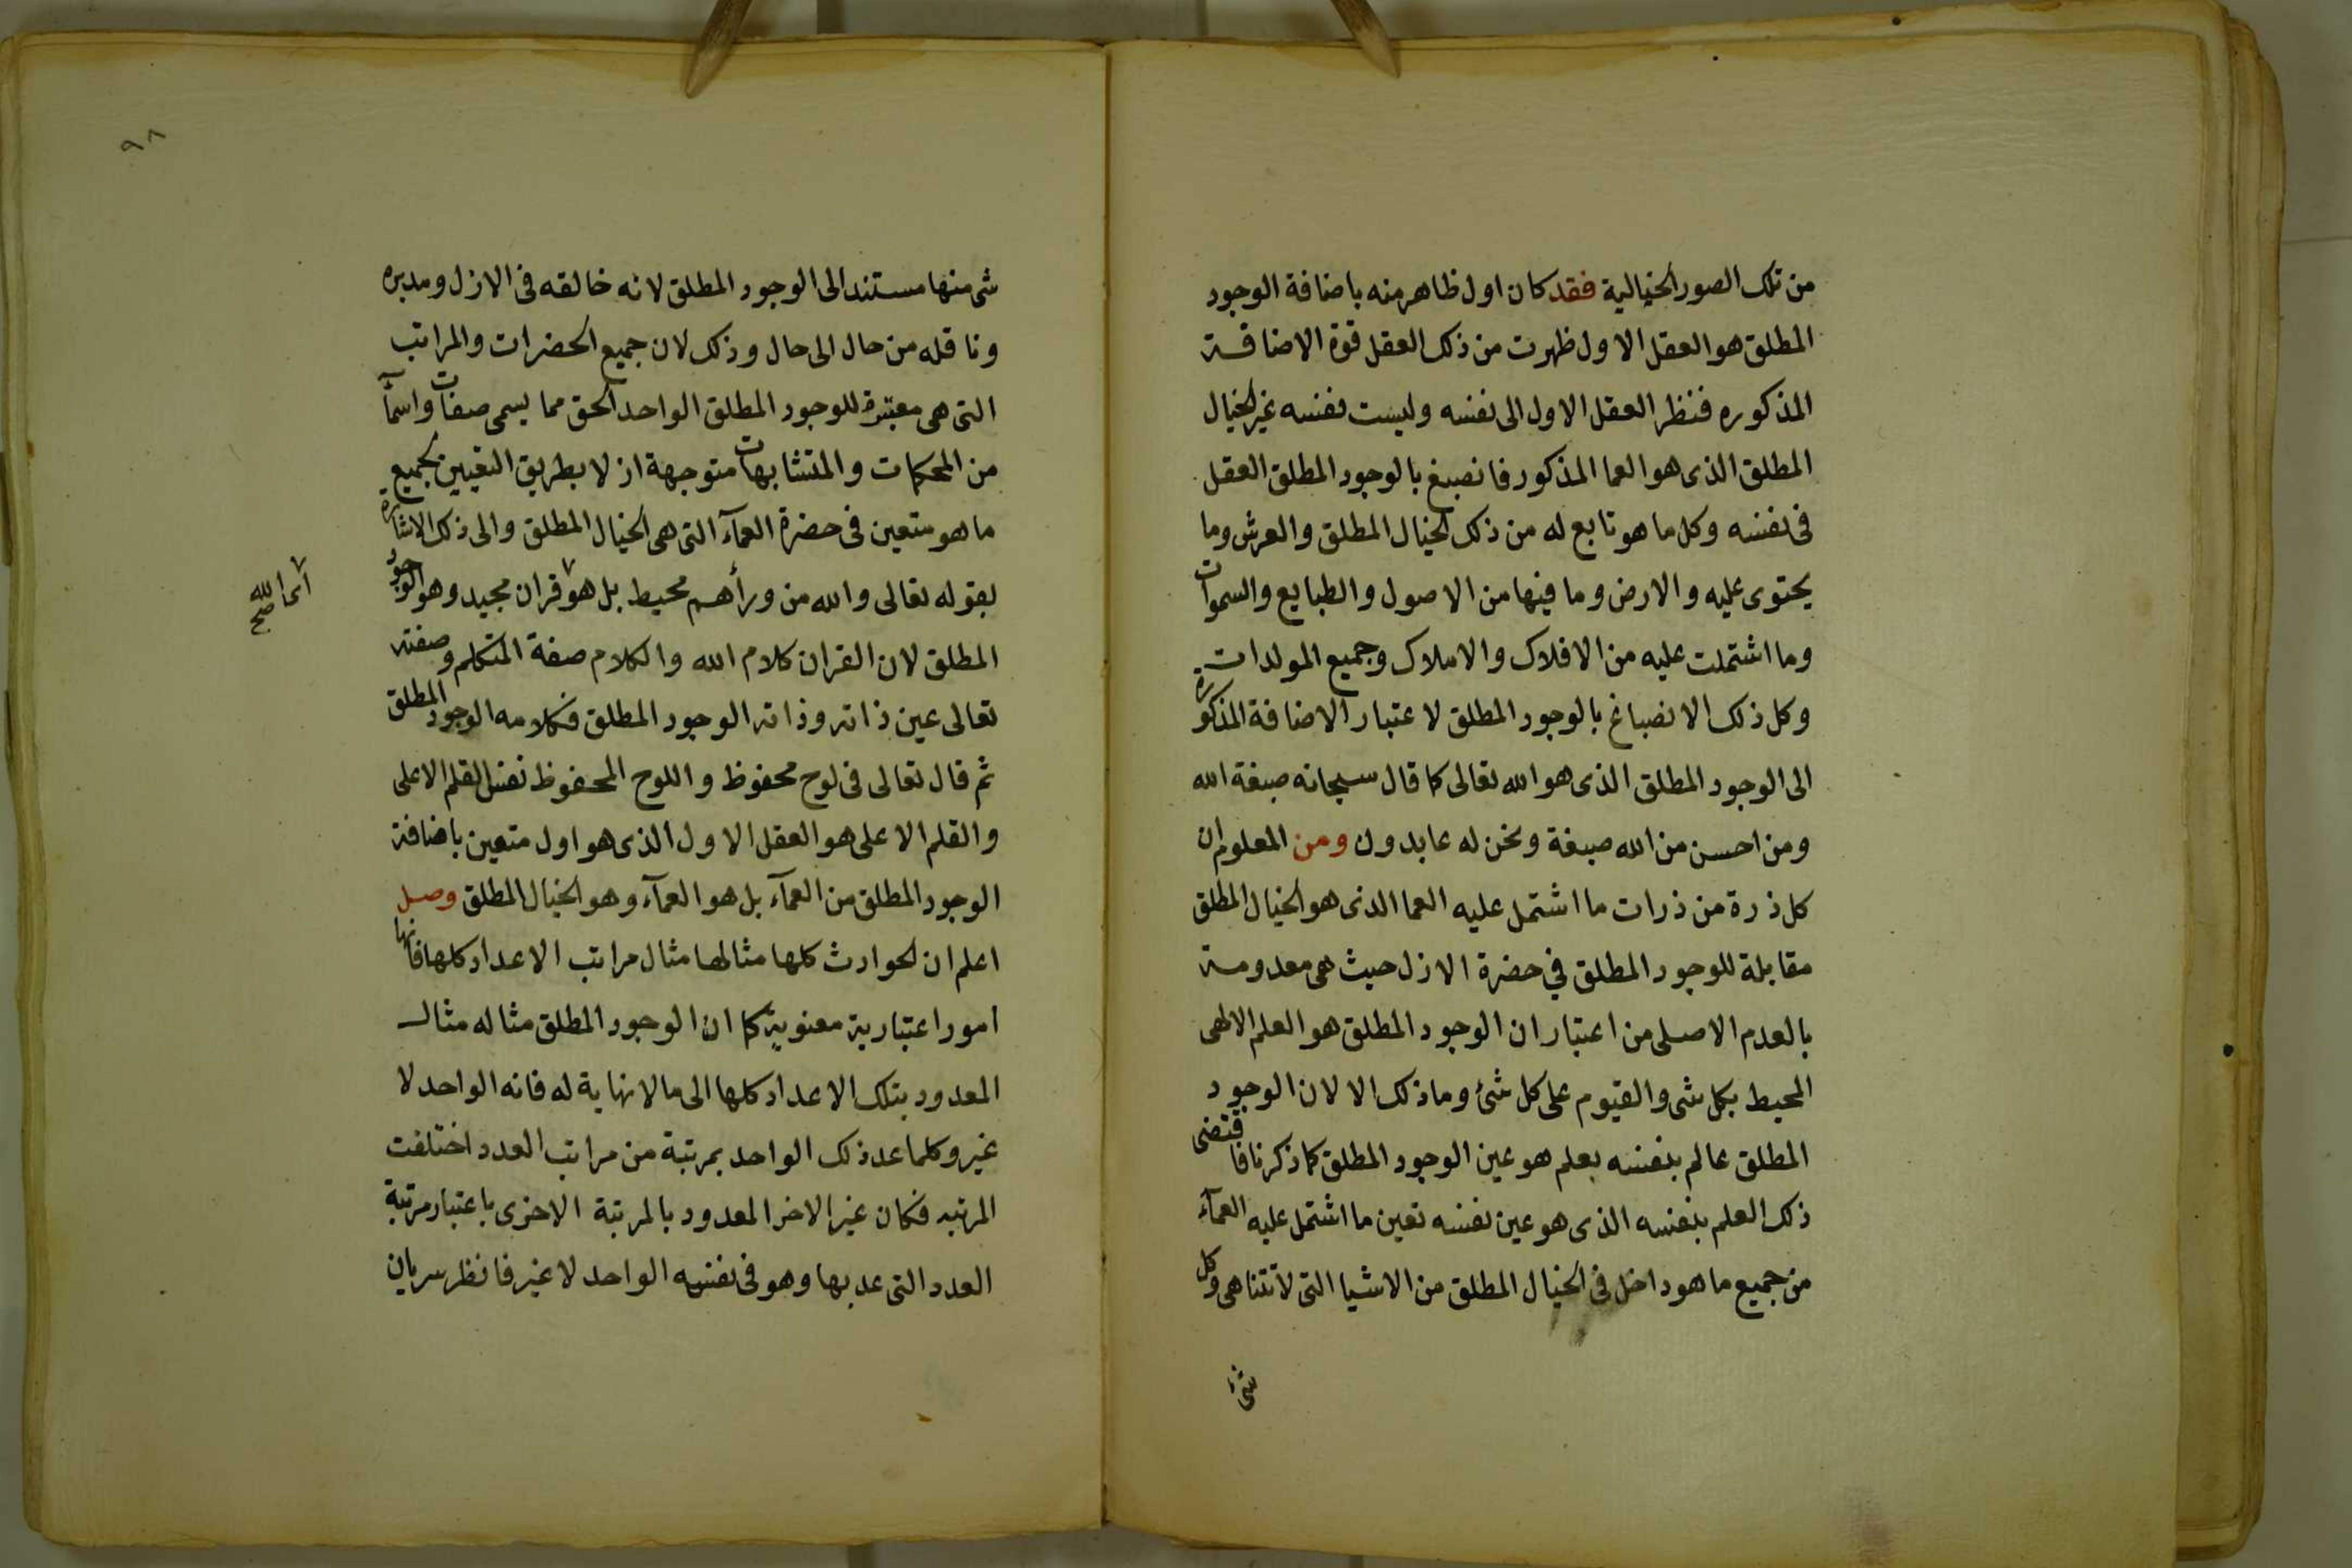 من تلك الصور الخيالية فقد كان اول ظاهر منه باضافة الوجود
المطلق هو العقل الاول ظهرت من ذلك العقل قوة الاضافة
المذكوره فنظر العقل الاول الى نفسه وليست نفسه غير الخيال
المطلق الذى هو العما المذكور فانصبغ بالوجود المطلق العقل
فى نفسه وكل ما هو تابع له من ذلك الخيال المطلق والعرش وما
يحتوى عليه والارض وما فيها من الاصول والطبايع والسموات
وما اشتملت عليه من الافلاك والاملاك وجميع المولدات
وكل ذلك الانصباغ بالوجود المطلق لاعتبار الاضافة المذكورة
الى الوجود المطلق الذى هو الله تعالى كما قال سبحانه صبغة الله
ومن احسن من الله صبغة ونحن له عابدون ومن المعلوم ان
كل ذرة من ذرات ما اشتمل عليه العما الذى هو الخيال المطلق
مقابلة للوجود المطلق في حضرة الازل حيث هى معدومة
بالعدم الاصلى من اعتبار ان الوجود المطلق هو العلم الالهى
المحيط بكل شى والقيوم على كل شئ وما ذلك الا لان الوجود
المطلق عالم بنفسه بعلم هو عين الوجود المطلق كما ذكرنا فاقتضى
ذلك العلم بنفسه الذى هو عين نفسه تعين ما اشتمل عليه العمآء
من جميع ما هو داخل فى الخيال المطلق من الاشيا التى لا تتناهى وكل
شئ
٩٨
شى منها مستند الى الوجود المطلق لانه خالقه فى الازل ومدبره
وناقله من حال الى حال وذلك لان جميع الحضرات والمراتب
التى هى معتبرة للوجود المطلق الواحد الحق مما يسمى صفات واسمآ
من المحكمات والمتشابهات متوجهة ازلا بطريق التعيين بجميع
ما هو متعين فى حضرة العمآء التى هى الخيال المطلق والى ذلك الاشارة
بقوله تعالى والله من ورأهم محيط بل هو قران مجيد وهو الوجود
اى الله صح
المطلق لان القران كلام الله والكلام صفة المتكلم وصفته
تعالى عين ذاته وذاته الوجود المطلق فكلامه الوجود المطلق
ثم قال تعالى فى لوح محفوظ واللوح المحفوظ نفس القلم الاعلى
والقلم الاعلى هو العقل الاول الذى هو اول متعين باضافة
الوجود المطلق من العمآء بل هو العمآء وهو الخيال المطلق وصل
اعلم ان الحوادث كلها مثالها مثال مراتب الاعداد كلها فانها
امور اعتبارية معنوية كما ان الوجود المطلق مثاله مثال
المعدود بتلك الاعداد كلها الى مالا نهاية له فانه الواحد لا
غير وكلما عد ذلك الواحد بمرتبة من مراتب العدد اختلفت
المرتبه فكان غير الاخر المعدود بالمرتبة الاخرى باعتبار مرتبة
العدد التى عد بها وهو فى نفسه الواحد لا غير فانظر سريان